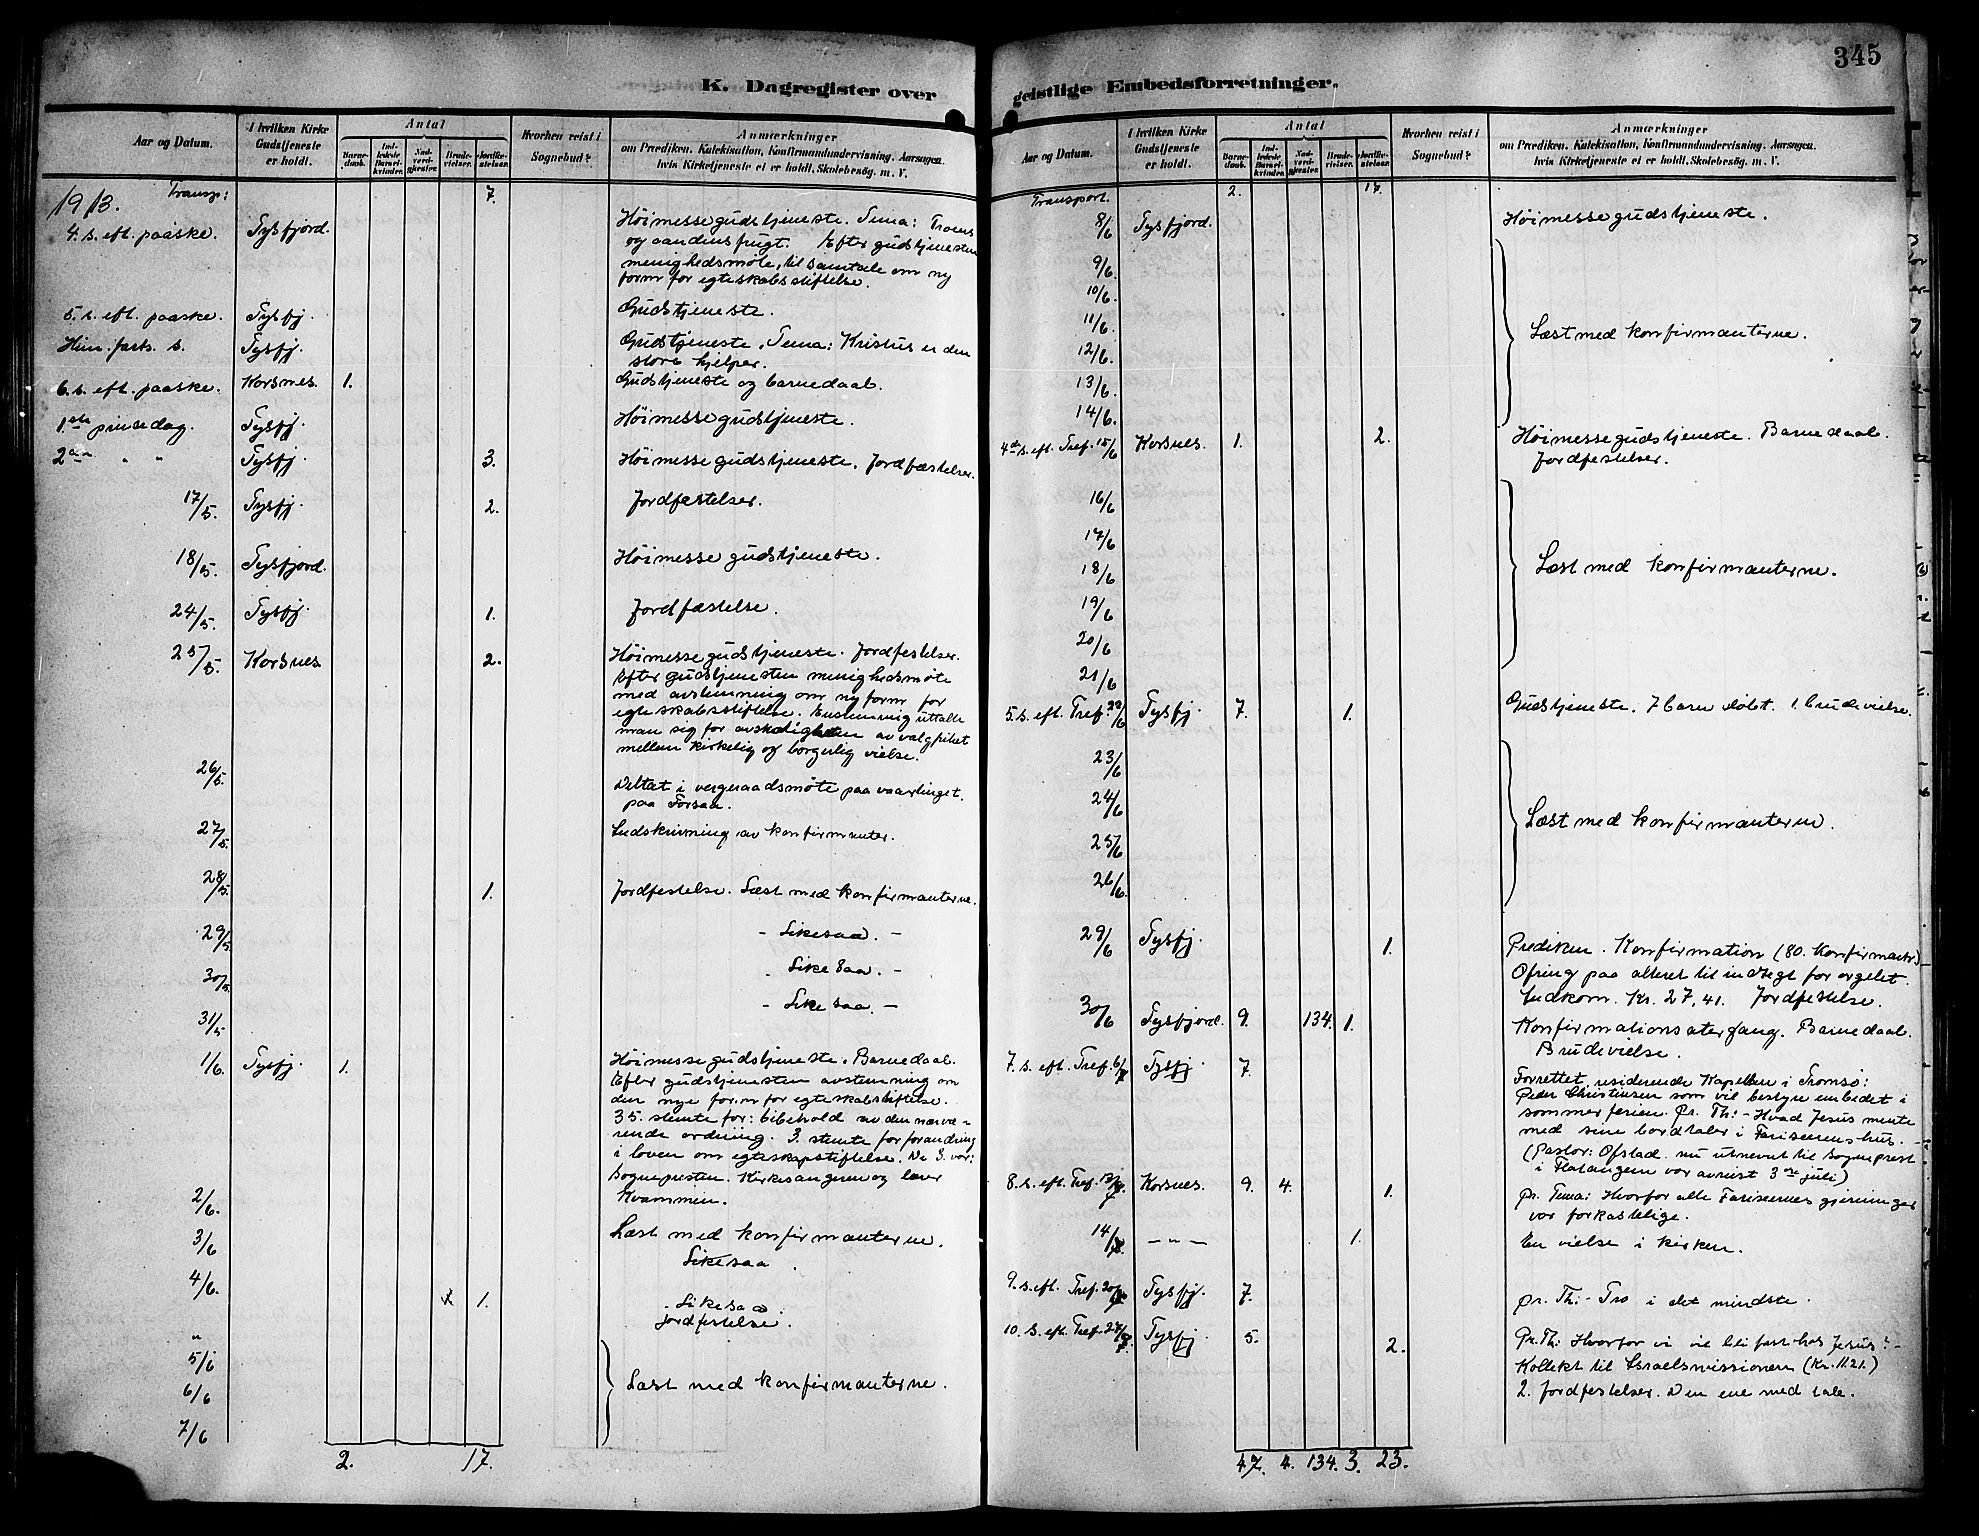 345
K. Dagregister over
geistlige Embedsforretninger.
Aar og Datum.
I hvilken Kirke Gudstjeneste er holdt.
Antal
Barnedaab.
Indledede Barselkvinder.
Nadverdgjester.
Brudevielser.
Jordfæstelser.
Hvorhen reist i Sognebud?
Anmærkninger
om Prædiken, Katekisation, Konfirmandundervisning, Aarsagen,
hvis Kirketjeneste ei er holdt, Skolebesøg. m. V.
1913. Transp: 7.
4. s. eft. paaske. Tysfjord. Høimessegudstjeneste. Tema: Troens
og aandens frugt. Efter gudstjenesten
menighedsmøte, til samtale om ny
form for egteskabsstiftelse.
5. s. eft. paaske. Tysfj. Gudstjeneste.
Him. farts. d. Tysfj. Gudstjeneste. Tema: Kristus er den
store hjelper.
6. s. eft. paaske. Korsnes. 1. Gudstjeneste og barnedaab.
1ste pinsedag. Tysfj. Høimessegudstjeneste.
2den " " Tysfj. 3. Høimessegudstjeneste. Jordfæstelser.
17/5. Tysfj. 2. Jordfestelser.
18/5. Tysfjord. Høimesse gudstjeneste.
24/5. Tysfj. 1. Jordfæstelse.
25/5. Korsnes 2. Høimessegudstjeneste. Jordfestelser.
Efter gudstjenesten menighedsmøte
med avstemning om ny form for
egteskabsstiftelse. Enstemmig uttalte
man sig for avskaligheten av valgfrihet
mellem kirkelig og borgerlig vielse.
26/5. Deltat i vergeraadsmøte paa vaartinget.
paa Forsaa.
27/5. Indskrivning av konfirmanter.
28/5. 1. Jordfestelse. Læst med konfirmanterne.
29/5. - Likesaa. -
30/5. - Likesaa. -
31/5 - Likesaa. -
1/6. Tysfj. 1. Høimessegudstjeneste. Barnedaab.
Efter gudstjenesten avstemning om
den nye form for egteskabstiftelse.
35. stemte for: bibehold av den nærvæ-
rende ordning. 3. stemte for forandring
i loven om egteskapstiftelse. De 3. var:
Sognepresten. Kirkesangeren og lærer
Kvammen.
2/6. Læst med konfirmanterne.
3/6 Likesaa
4/6. x 1. - Likesaa.
" Jordfestelse.
5/6
6/6 Læst med konfirmanterne.
7/6
2. 17.
Aar og Datum.
I hvilken Kirke Gudstjeneste er holdt.
Antal
Barnedaab.
Indledede Barselkvinder.
Nadverdgjester.
Brudevielser.
Jordfæstelser.
Hvorhen reist i Sognebud?
Anmærkninger
om Prædiken, Katekisation, Konfirmandundervisning, Aarsagen,
hvis Kirketjeneste ei er holdt, Skolebesøg. m. V.
Transport. 2. 17.
8/6 Tysfjord. Høimessegudstjeneste.
9/6.
10/6.
11/6.
12/6. Læst med konfirmanterne.
13/6.
14/6.
4de s. eft. Tref. 15/6 Korsnes. 1. 2. Høimessegudstjeneste. Barnedaab.
Jordfestelser.
16/6
17/6
18/6 Læst med konfirmanterne.
19/6
20/6
21/6
5. s. eft. Tref. 22/6 Tysfj. 7. 1. Gudstjeneste. 7 barn døbt. 1. brudevielse.
23/6
24/6 Læst med konfirmanterne.
25/6
26/6.
29/6 Tysfj. 1. Prediken. Konfirmation (80. Konfirmanter)
Ofring paa alteret til indtegt for orgelet.
Indkom. Kr. 27,41. Jordfestelse.
30/6 Tysfjord. 9. 134. 1. Konfirmationsatergang. Barnedaab.
Brudevielse.
7. s. eft. Tref. 6/7 Tysfj. 7. Forrettet residerende Kapellan i Tromsø:
Peder Christensen som vil bestyre embedet i
sommerferien. Pr. Th: - Hvad Jesus mente
med sine bordtaler i Fariseerens hus. -
(Pastor: Ofstad. nu utnevnt til sogneprest
i Flatangen var avreist 3die juli)
8. s. eft. Tref. 13/7. Korsnes. 9. 4. 1. Pr. Tema: Hvorfor alle Fariseernes gjerninger
var forkastelige.
14/7. - " - 1. En vielse i kirken.
9. s. eft. Tref. 20/7 Tysfj. 7. Pr. Th: - Tro i det mindste.
10. s. eft. Tref. 27/7. Tysfj. 5. 2. Pr. Th: Hvorfor vi vil bli fast hos Jesus? -
Kollekt til Israelsmissionen (Kr. 11.21.)
2. Jordfestelser. Den ene med tale.
47. 4. 134. 3. 23.